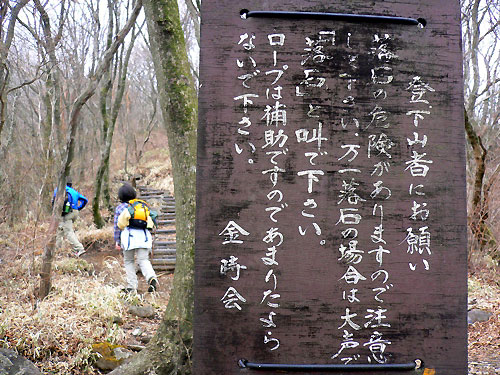 登下山者にお願い
落石の危険がありますので注意
して下さい、万一落石の場合は大声で
「落石」と叫で下さい。
ロープは補助ですのであまりたよら
ないで下さい。
金時会